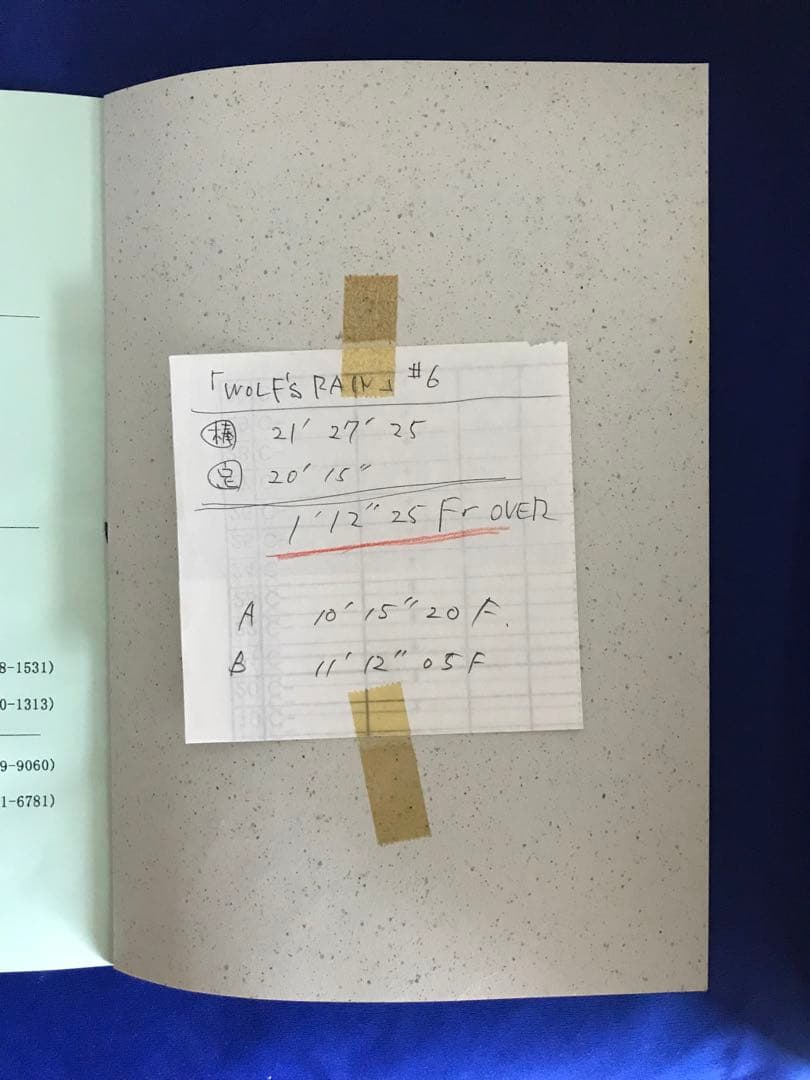 8-1531)
0-1313)
9-9060)
1-6781)
「WOLF'S RAIN」 #6
21' 27' 25
20' 15"
1' 12" 25 Fr OVER
A 10' 15" 20 F.
B 11' 12" 05 F